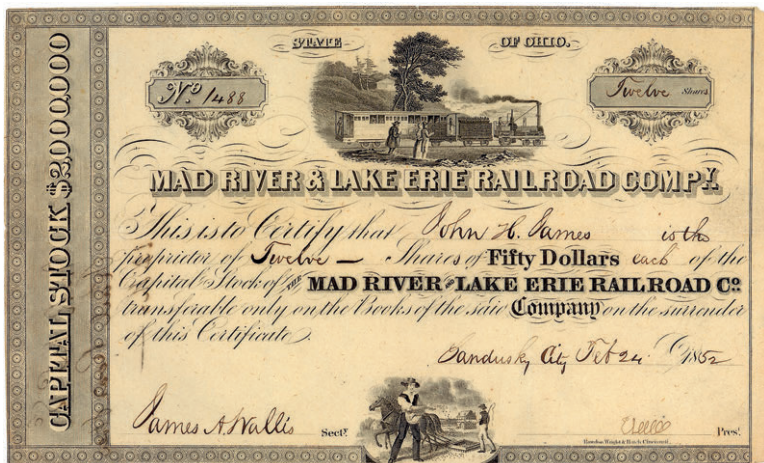 STATE OF OHIO.
No 1488
Twelve Shares
MAD RIVER & LAKE ERIE RAILROAD COMPY.
This is to Certify that John H. James is the
proprietor of Twelve — Shares of Fifty Dollars each of the
Capital Stock of THE MAD RIVER AND LAKE ERIE RAILROAD Co.
transferable only on the Books of the said Company on the surrender
of this Certificate.
Sandusky City Feb 24 1852
James A Wallis Secty.
Prest.
CAPITAL STOCK $2,000,000